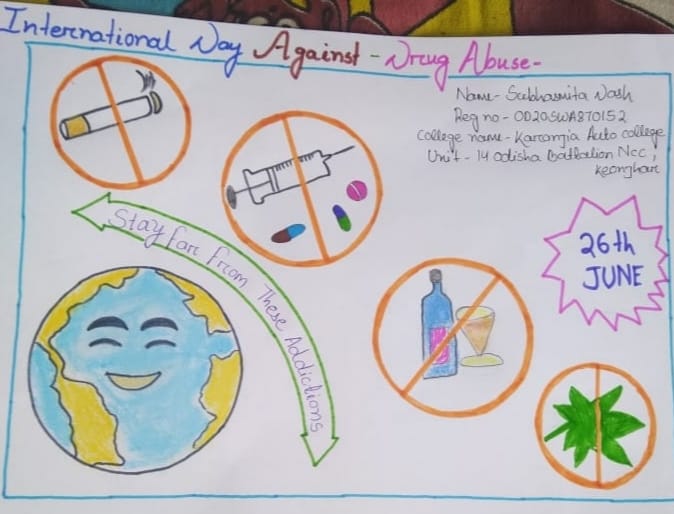 International Day Against - Drug Abuse -
Name - Subhasmita Dash
Reg no - OD20SWA870152
College name - Karanjia Auto college
Unit - 14 odisha Battalion Ncc,
Keonjhar
Stay Far From These Addictions
26th
JUNE